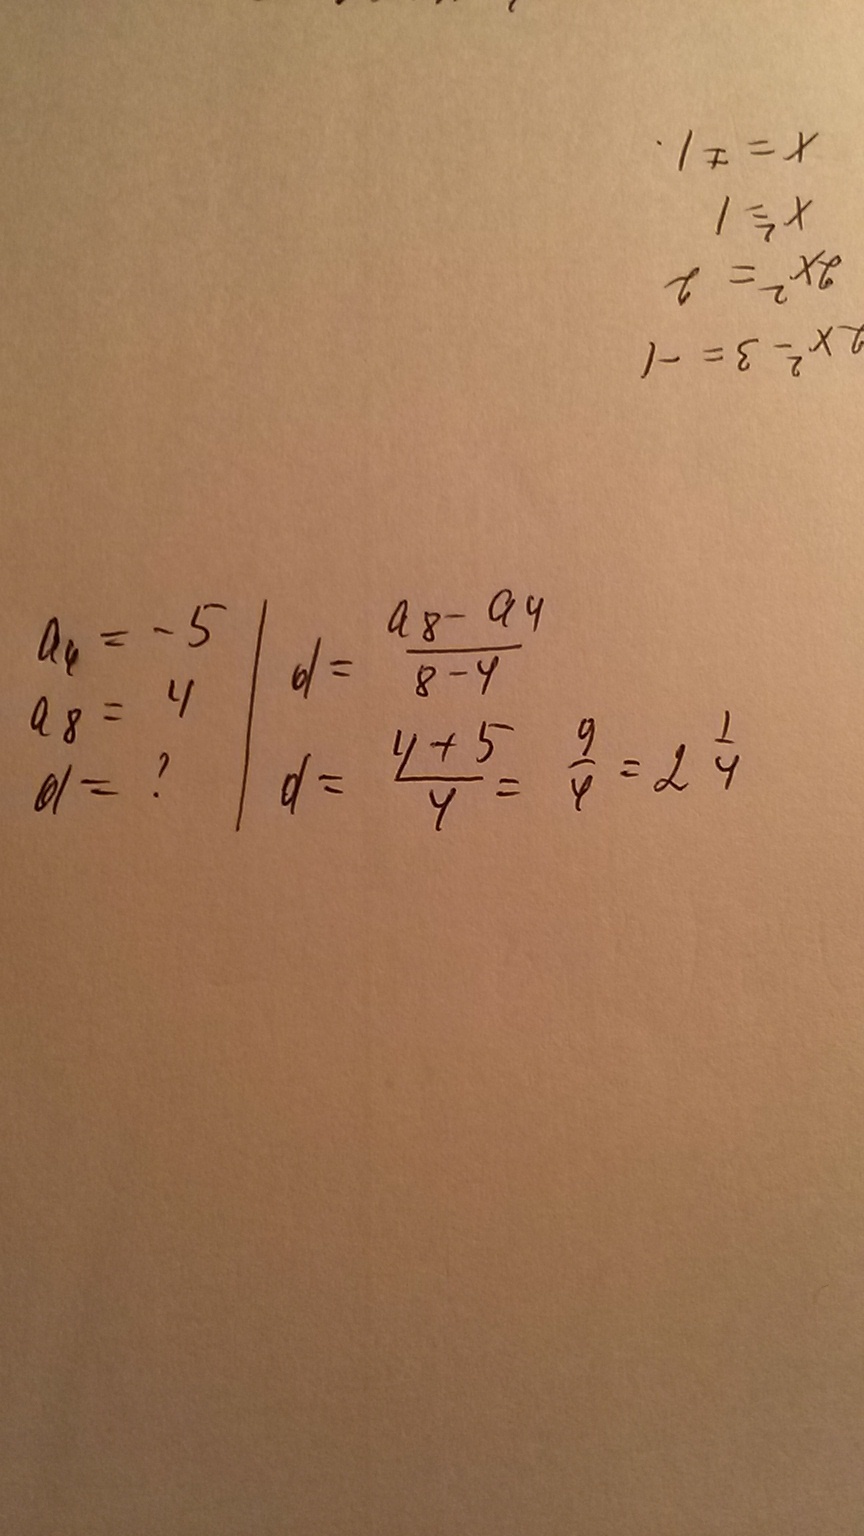 2x² - 3 = -1
2x² = 2
x² = 1
x = ±1.
a₄ = -5 | d = (a₈ - a₄)/(8 - 4)
a₈ = 4
d = ? | d = (4 + 5)/4 = 9/4 = 2 1/4